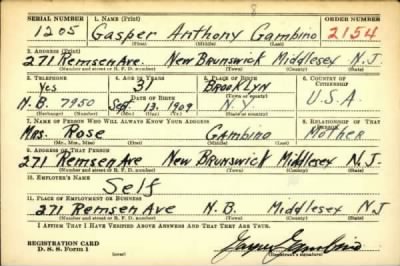 8
SERIAL NUMBER 1. NAME (Print) ORDER NUMBER
1205 Gasper Anthony Gambino 2154
(First) (Middle) (Last)
2. ADDRESS (Print)
271 Remsen Ave. New Brunswick Middlesex N.J.
(Number and street or R. F. D. number) (Town) (County) (State)
3. TELEPHONE 4. AGE IN YEARS 5. PLACE OF BIRTH 6. COUNTRY OF CITIZENSHIP
Yes 31 Brooklyn
DATE OF BIRTH (Town or county)
N.B. 7950 Sept. 13. 1909 N.Y. U.S.A.
(Exchange) (Number) (Mo.) (Day) (Yr.) (State or country)
7. NAME OF PERSON WHO WILL ALWAYS KNOW YOUR ADDRESS 8. RELATIONSHIP OF THAT PERSON
Mrs. Rose Gambino Mother
(Mr., Mrs., Miss) (First) (Middle) (Last)
9. ADDRESS OF THAT PERSON
271 Remsen Ave New Brunswick Middlesex N.J.
(Number and street or R. F. D. number) (Town) (County) (State)
10. EMPLOYER'S NAME
Self
11. PLACE OF EMPLOYMENT OR BUSINESS
271 Remsen Ave N.B. Middlesex NJ
(Number and street or R. F. D. number) (Town) (County) (State)
I AFFIRM THAT I HAVE VERIFIED ABOVE ANSWERS AND THAT THEY ARE TRUE.
REGISTRATION CARD
D. S. S. Form 1
(Registrant's signature)